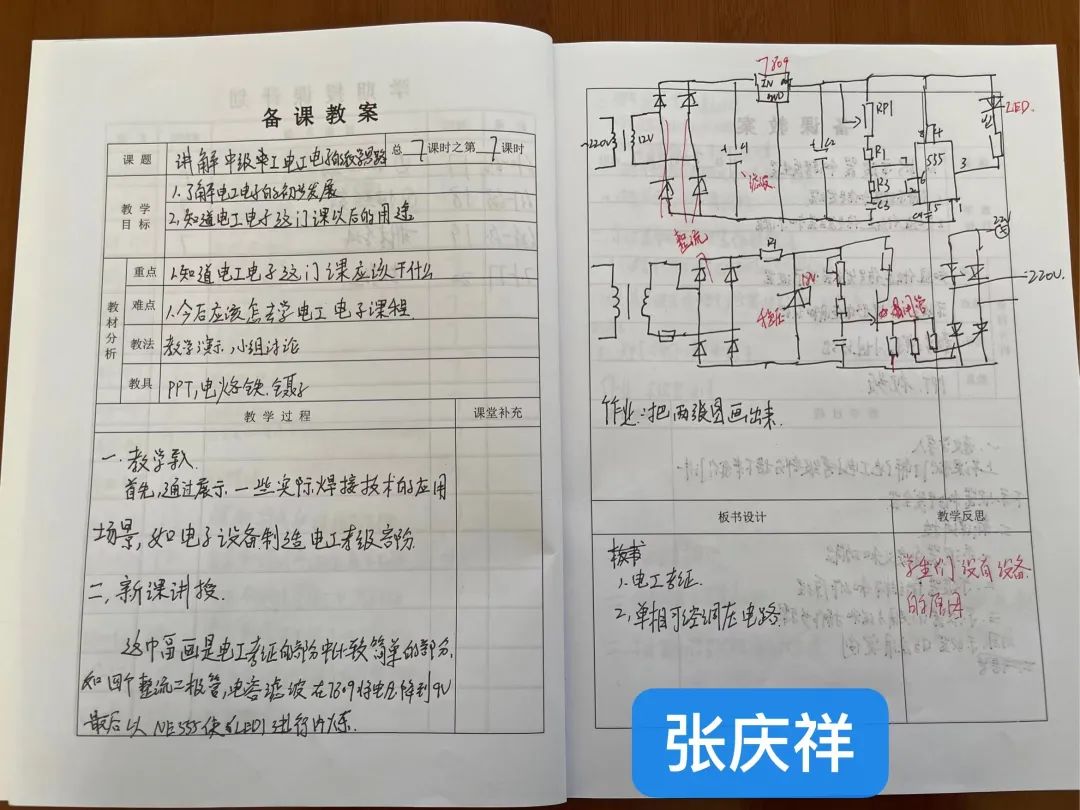 备课教案
课题
讲解中级电工电工电子的教学思路
总7课时之第7课时
教学目标
1.了解电工电子的初步发展
2.知道电工电子这门课以后的用途
教材分析
重点
1.知道电工电子这门课应该干什么
难点
1.今后应该怎么去学电工电子课程
教法
教学演示,小组讨论
教具
PPT,电烙铁.镊子
教学过程
课堂补充
一.教学导入
首先,通过展示一些实际焊接技术的应用
场景,如电子设备制造电工考级部份
二,新课讲授
这幅画是电工考证的部份中比较简单的部分,
如四个整流二极管,电容滤波在7809将电压降到9V
最后以NE555使LED1进行闪烁.
7809
IN
GND
~220V
12V
C1
C2
RP1
R1
R3
C3
555
7
6
2
8
4
3
5
1
LED.
滤波
整流
R1
稳压
220V.
作业:把两张图画出来.
板书设计
教学反思
板书
1.电工考证.
2.单相可控调压电路.
学生们没有设备
的原因
张庆祥